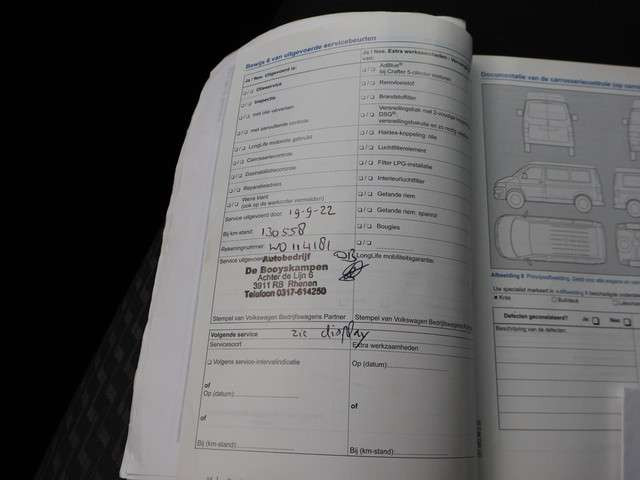 Bewijs 6 van uitgevoerde servicebeurten
Ja / Nee. Uitgevoerd is:
Olieservice
Inspectie
met olie verversen
met aanvullende controle
LongLife motorolie gebruikt
Carrosseriecontrole
Gasinstallatiecontrole
Reparatieadvies
Wens klant
(ook op de werkorder vermelden)
Service uitgevoerd door: 19-9-22
Bij km-stand: 130558
Rekeningnummer: WO114181
Service uitgevoerd
Autobedrijf
De Booyskampen
Achter de Lijn 6
3911 RB Rhenen
Telefoon 0317-614250
Stempel van Volkswagen Bedrijfswagens Partner
Volgende service zie display
Servicesoort
Volgens service-intervalindicatie
of
Op (datum):
of
Bij (km-stand):
Ja / Nee. Extra werkzaamheden
van:
AdBlue®
bij Crafter 5-cilinder motoren
Remvloeistof
Brandstoffilter
DSG®,
Haldex-koppeling: olie
Luchtfilterelement
Filter LPG-installatie
Interieurluchtfilter
Getande riem
Getande riem: spanrol
Bougies
LongLife mobiliteitsgarantie:
Stempel van Volkswagen Bedrijfswagens
Extra werkzaamheden
Op (datum):
of
Bij (km-stand):
Documentatie van de carrosseriecontrole
Afbeelding 6
Defecten geconstateerd? Ja: Nee:
Beschrijving van de defecten: